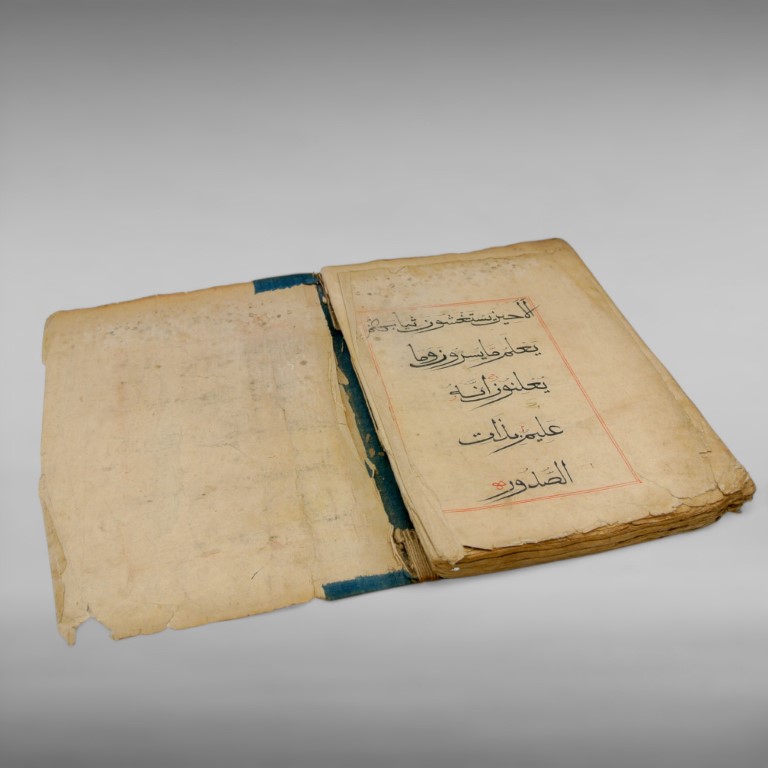 الاحين يستغشون ثيابهم
يعلم ما يسرون وما
يعلنون انه
عليم بذات
الصدور